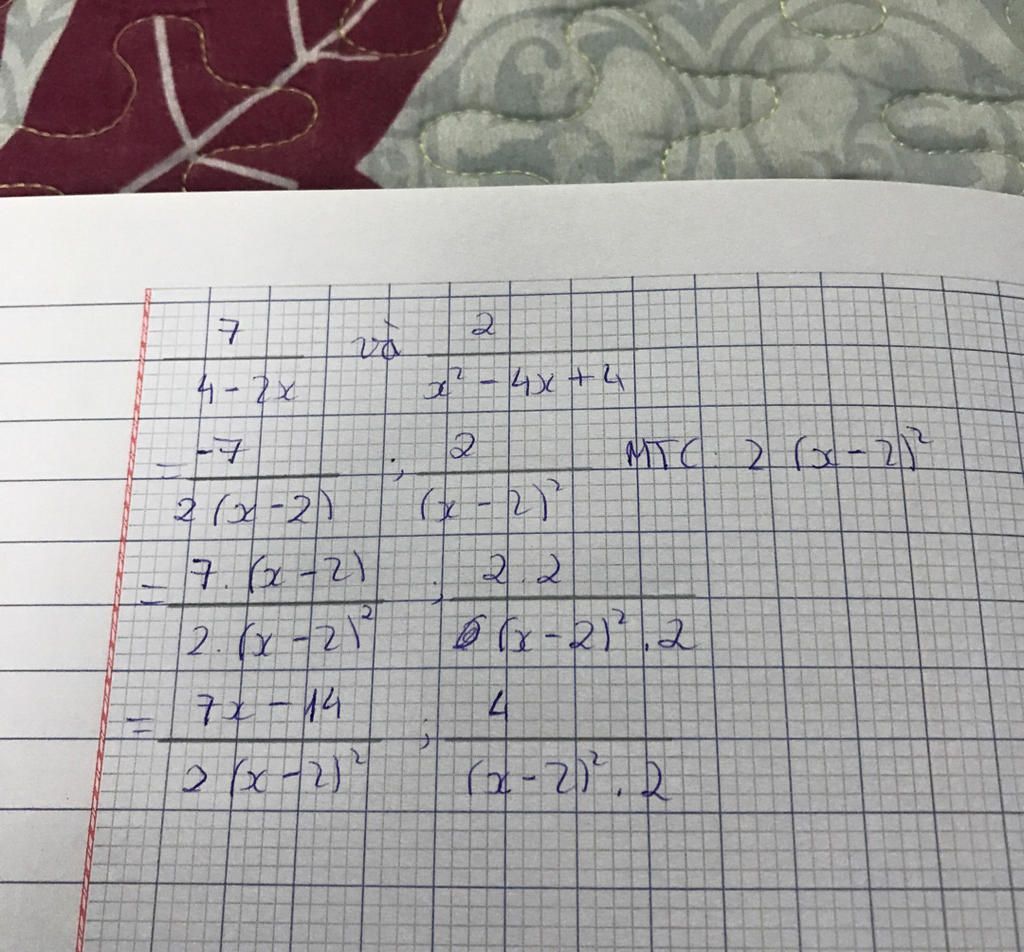 7/(4 - 2x) và 2/(x² - 4x + 4)
= -7/(2(x - 2)) ; 2/(x - 2)² MTC: 2(x - 2)²
= 7.(x - 2)/(2.(x - 2)²) ; 2.2/((x - 2)².2)
= (7x - 14)/(2(x - 2)²) ; 4/((x - 2)².2)